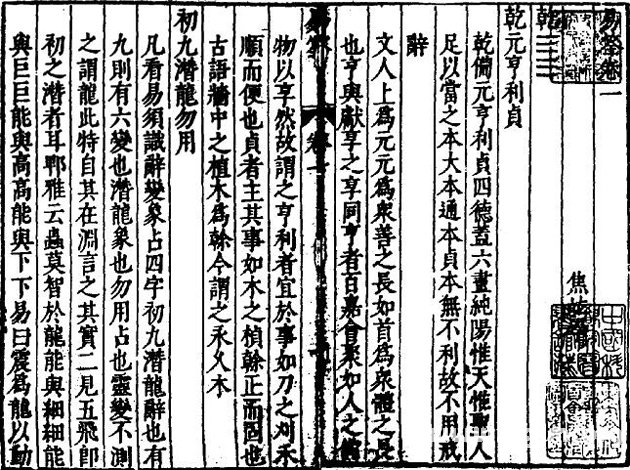 易筌卷一
焦
乾
乾元亨利貞
乾備元亨利貞四德蓋六畫純陽惟天惟聖人
足以當之本大本通本貞本無不利故不用戒
辭
文人上為元元為衆善之長如首為衆體之長
也亨與獻享之享同亨者百嘉會聚如人之備
易筌 卷一
物以享然故謂之亨利者宜於事如刀之刈禾
順而便也貞者主其事如木之楨榦正而固也
古語牆中之植木為榦今謂之永乂木
初九潛龍勿用
凡看易須識辭變象占四字初九潛龍辭也有
九則有六變也潛龍象也勿用占也靈變不測
之謂龍此特自其在淵言之其實二見五飛即
初之潛者耳郫雅云蟲莫智於龍能與細細能
與巨巨能與高高能與下下易曰震為龍以動